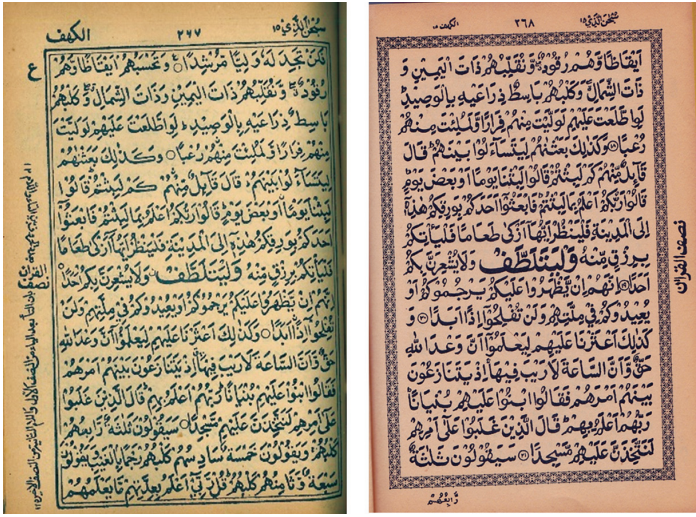 سبحن الذی ١٥ ٢٦٧ الكهف
فَلَنْ تَجِدَ لَهٗ وَلِيًّا مُّرْشِدًا ۝ وَتَحْسَبُهُمْ اَيْقَاظًا وَّهُمْ
رُقُوْدٌ وَّنُقَلِّبُهُمْ ذَاتَ الْيَمِيْنِ وَذَاتَ الشِّمَالِ وَكَلْبُهُمْ
بَاسِطٌ ذِرَاعَيْهِ بِالْوَصِيْدِ لَوِاطَّلَعْتَ عَلَيْهِمْ لَوَلَّيْتَ
مِنْهُمْ فِرَارًا وَّلَمُلِئْتَ مِنْهُمْ رُعْبًا ۝ وَكَذٰلِكَ بَعَثْنٰهُمْ
لِيَتَسَآءَلُوْا بَيْنَهُمْ قَالَ قَآئِلٌ مِّنْهُمْ كَمْ لَبِثْتُمْ قَالُوْا
لَبِثْنَا يَوْمًا اَوْ بَعْضَ يَوْمٍ قَالُوْا رَبُّكُمْ اَعْلَمُ بِمَا لَبِثْتُمْ فَابْعَثُوْٓا
اَحَدَكُمْ بِوَرِقِكُمْ هٰذِهٖٓ اِلَى الْمَدِيْنَةِ فَلْيَنْظُرْ اَيُّهَآ اَزْكٰى طَعَامًا
فَلْيَاْتِكُمْ بِرِزْقٍ مِّنْهُ وَلْيَتَلَطَّفْ وَلَا يُشْعِرَنَّ بِكُمْ اَحَدًا ۝
اِنَّهُمْ اِنْ يَّظْهَرُوْا عَلَيْكُمْ يَرْجُمُوْكُمْ اَوْ يُعِيْدُوْكُمْ فِيْ مِلَّتِهِمْ وَلَنْ
تُفْلِحُوْٓا اِذًا اَبَدًا ۝ وَكَذٰلِكَ اَعْثَرْنَا عَلَيْهِمْ لِيَعْلَمُوْٓا اَنَّ وَعْدَ اللّٰهِ
حَقٌّ وَّاَنَّ السَّاعَةَ لَا رَيْبَ فِيْهَا اِذْ يَتَنَازَعُوْنَ بَيْنَهُمْ اَمْرَهُمْ
فَقَالُوا ابْنُوْا عَلَيْهِمْ بُنْيَانًا رَبُّهُمْ اَعْلَمُ بِهِمْ قَالَ الَّذِيْنَ غَلَبُوْا
عَلٰٓى اَمْرِهِمْ لَنَتَّخِذَنَّ عَلَيْهِمْ مَّسْجِدًا ۝ سَيَقُوْلُوْنَ ثَلٰثَةٌ رَّابِعُهُمْ
كَلْبُهُمْ وَيَقُوْلُوْنَ خَمْسَةٌ سَادِسُهُمْ كَلْبُهُمْ رَجْمًا بِالْغَيْبِ وَيَقُوْلُوْنَ
سَبْعَةٌ وَّثَامِنُهُمْ كَلْبُهُمْ قُلْ رَّبِّيْٓ اَعْلَمُ بِعِدَّتِهِمْ مَّا يَعْلَمُهُمْ
ع
سبحن الذی ١٥ ٢٦٨ الكهف ١٨
اَيْقَاظًا وَّهُمْ رُقُوْدٌ وَّنُقَلِّبُهُمْ ذَاتَ الْيَمِيْنِ وَ
ذَاتَ الشِّمَالِ وَكَلْبُهُمْ بَاسِطٌ ذِرَاعَيْهِ بِالْوَصِيْدِ
لَوِاطَّلَعْتَ عَلَيْهِمْ لَوَلَّيْتَ مِنْهُمْ فِرَارًا وَّلَمُلِئْتَ مِنْهُمْ
رُعْبًا ۝ وَكَذٰلِكَ بَعَثْنٰهُمْ لِيَتَسَآءَلُوْا بَيْنَهُمْ قَالَ
قَآئِلٌ مِّنْهُمْ كَمْ لَبِثْتُمْ قَالُوْا لَبِثْنَا يَوْمًا اَوْ بَعْضَ يَوْمٍ
قَالُوْا رَبُّكُمْ اَعْلَمُ بِمَا لَبِثْتُمْ فَابْعَثُوْٓا اَحَدَكُمْ بِوَرِقِكُمْ هٰذِهٖٓ
اِلَى الْمَدِيْنَةِ فَلْيَنْظُرْ اَيُّهَآ اَزْكٰى طَعَامًا فَلْيَاْتِكُمْ
بِرِزْقٍ مِّنْهُ وَلْيَتَلَطَّفْ وَلَا يُشْعِرَنَّ بِكُمْ
اَحَدًا ۝ اِنَّهُمْ اِنْ يَّظْهَرُوْا عَلَيْكُمْ يَرْجُمُوْكُمْ اَوْ
يُعِيْدُوْكُمْ فِيْ مِلَّتِهِمْ وَلَنْ تُفْلِحُوْٓا اِذًا اَبَدًا ۝ وَ
كَذٰلِكَ اَعْثَرْنَا عَلَيْهِمْ لِيَعْلَمُوْٓا اَنَّ وَعْدَ اللّٰهِ
حَقٌّ وَّاَنَّ السَّاعَةَ لَا رَيْبَ فِيْهَا اِذْ يَتَنَازَعُوْنَ
بَيْنَهُمْ اَمْرَهُمْ فَقَالُوا ابْنُوْا عَلَيْهِمْ بُنْيَانًا
رَبُّهُمْ اَعْلَمُ بِهِمْ قَالَ الَّذِيْنَ غَلَبُوْا عَلٰٓى اَمْرِهِمْ
لَنَتَّخِذَنَّ عَلَيْهِمْ مَّسْجِدًا ۝ سَيَقُوْلُوْنَ ثَلٰثَةٌ
رَّابِعُهُمْ
نصف القرآن